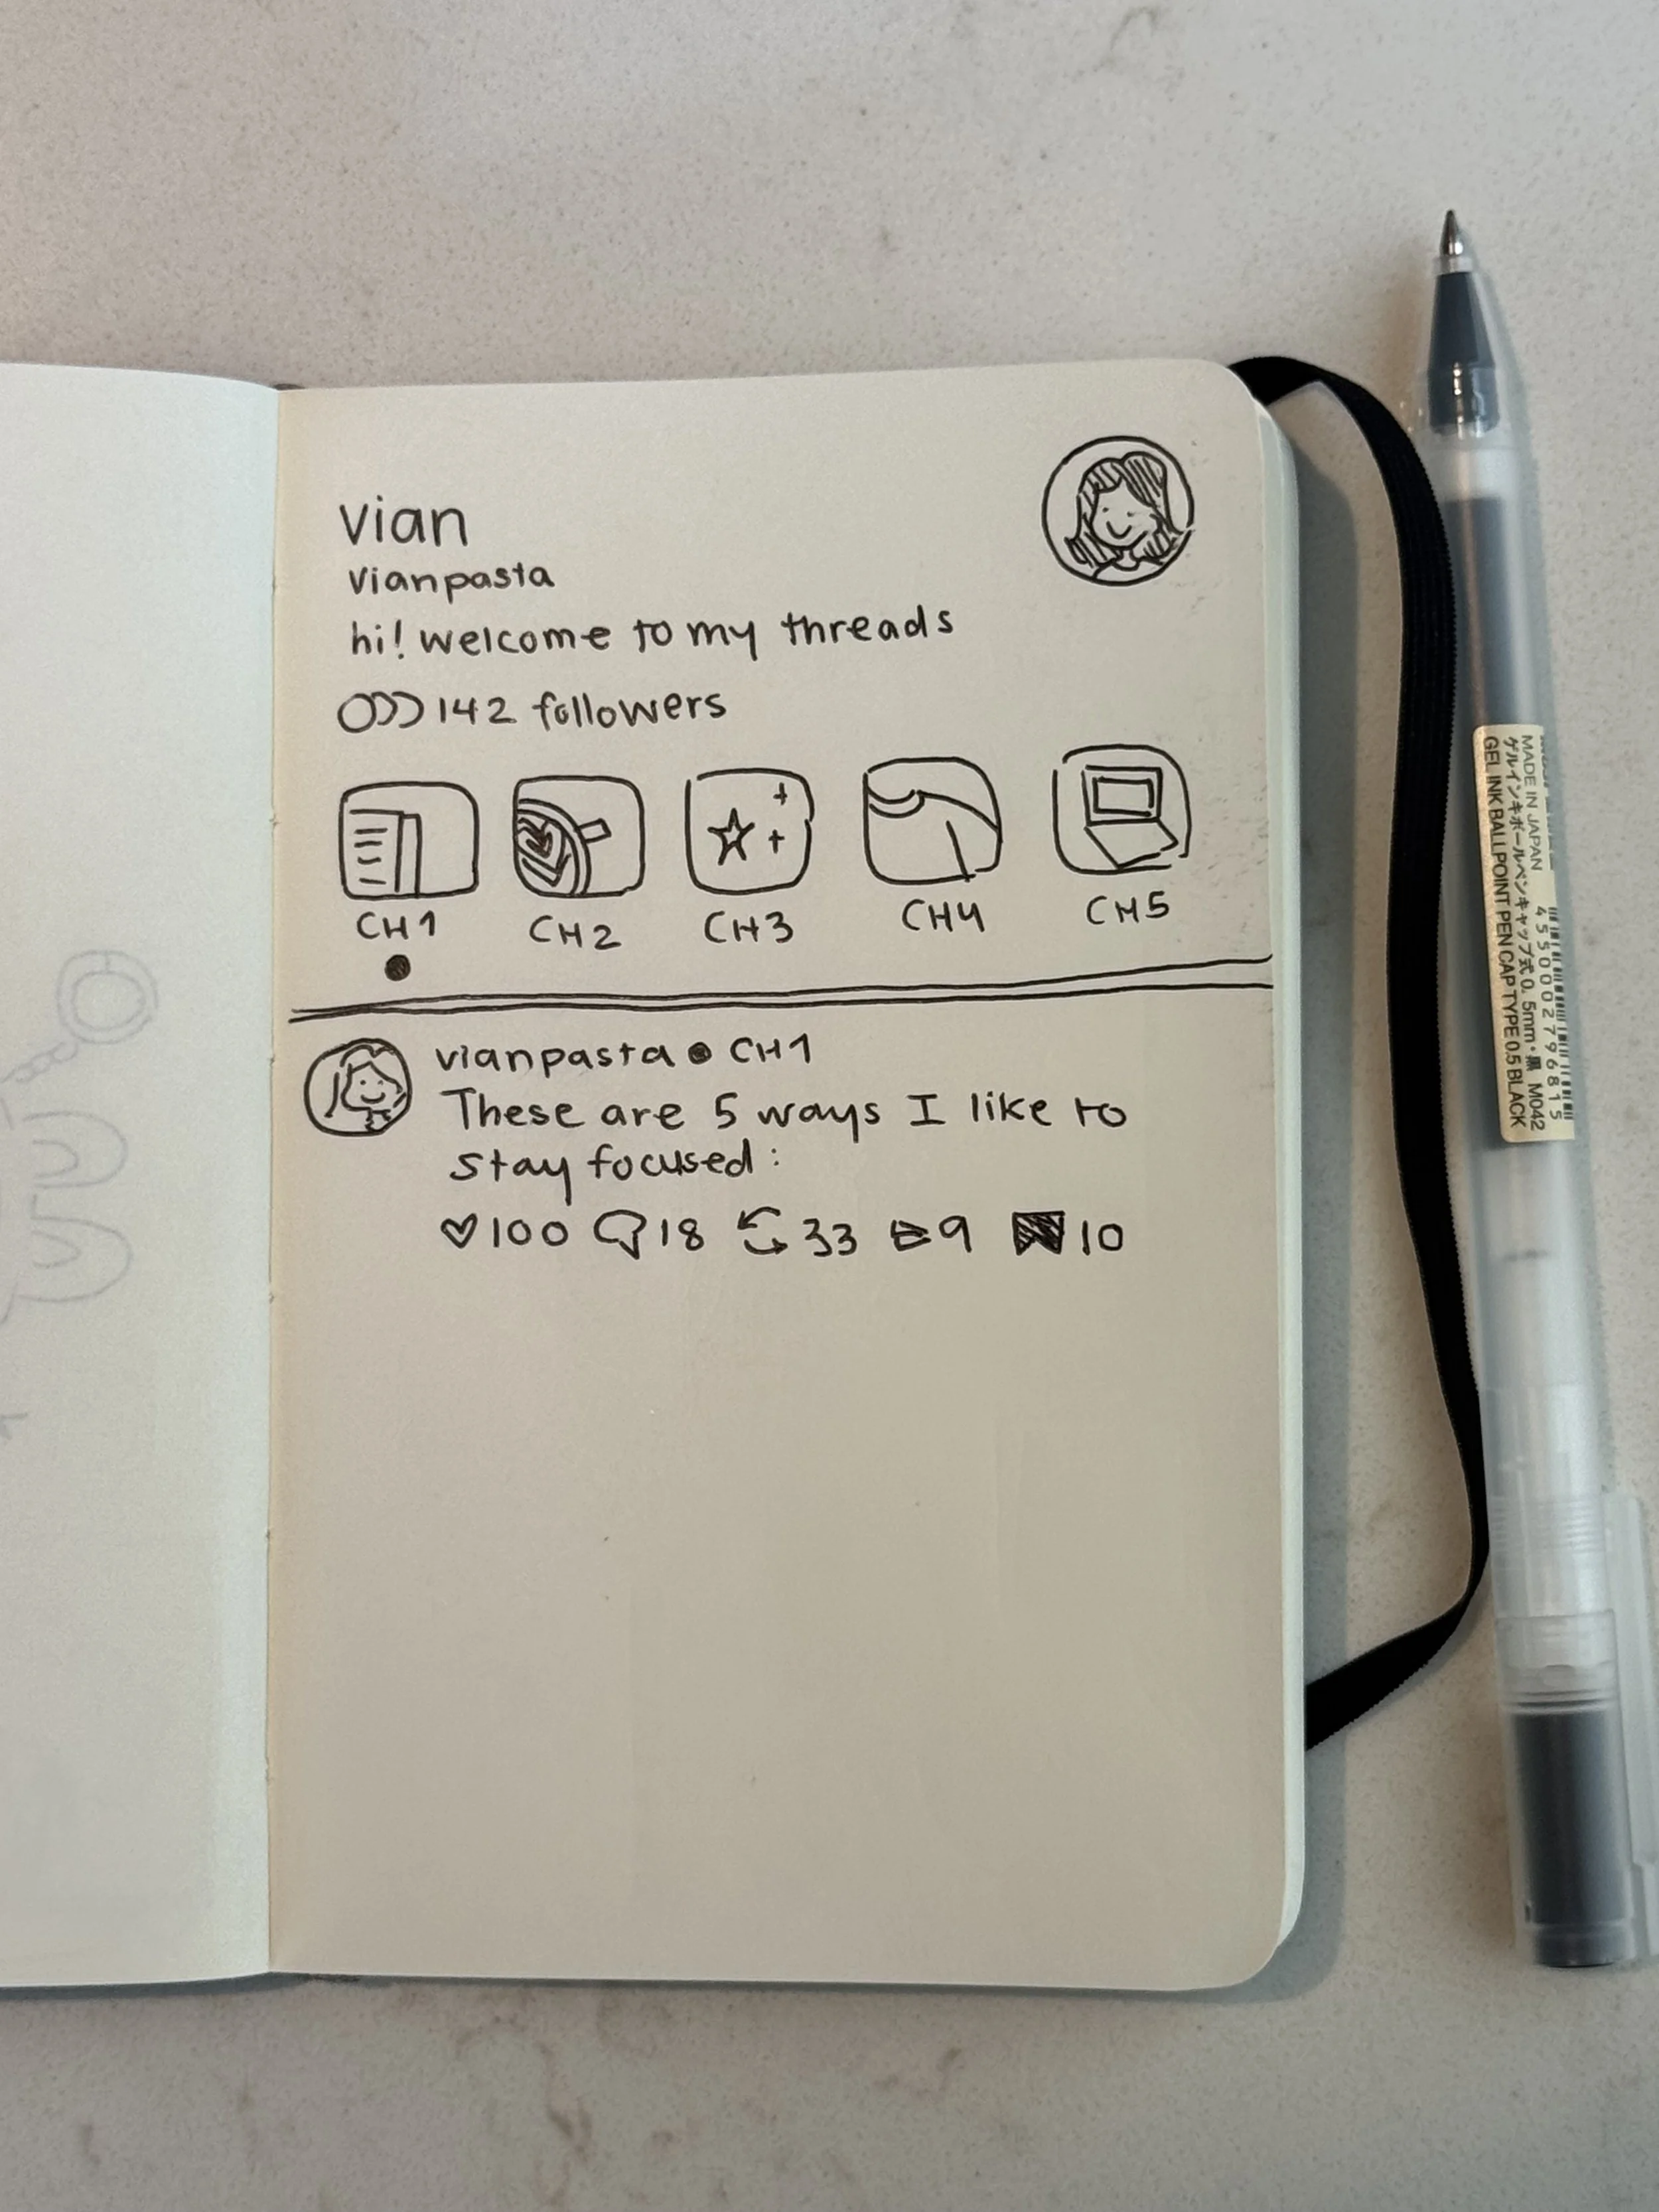 vian
vianpasta
hi! welcome to my threads
142 followers
CH1 CH2 CH3 CH4 CH5
vianpasta • CH1
These are 5 ways I like to
stay focused:
100 18 33 9 10
MADE IN JAPAN 4550002796815
ゲルインキボールペンキャップ式0.5mm・黒 M042
GEL INK BALLPOINT PEN CAP TYPE 0.5 BLACK